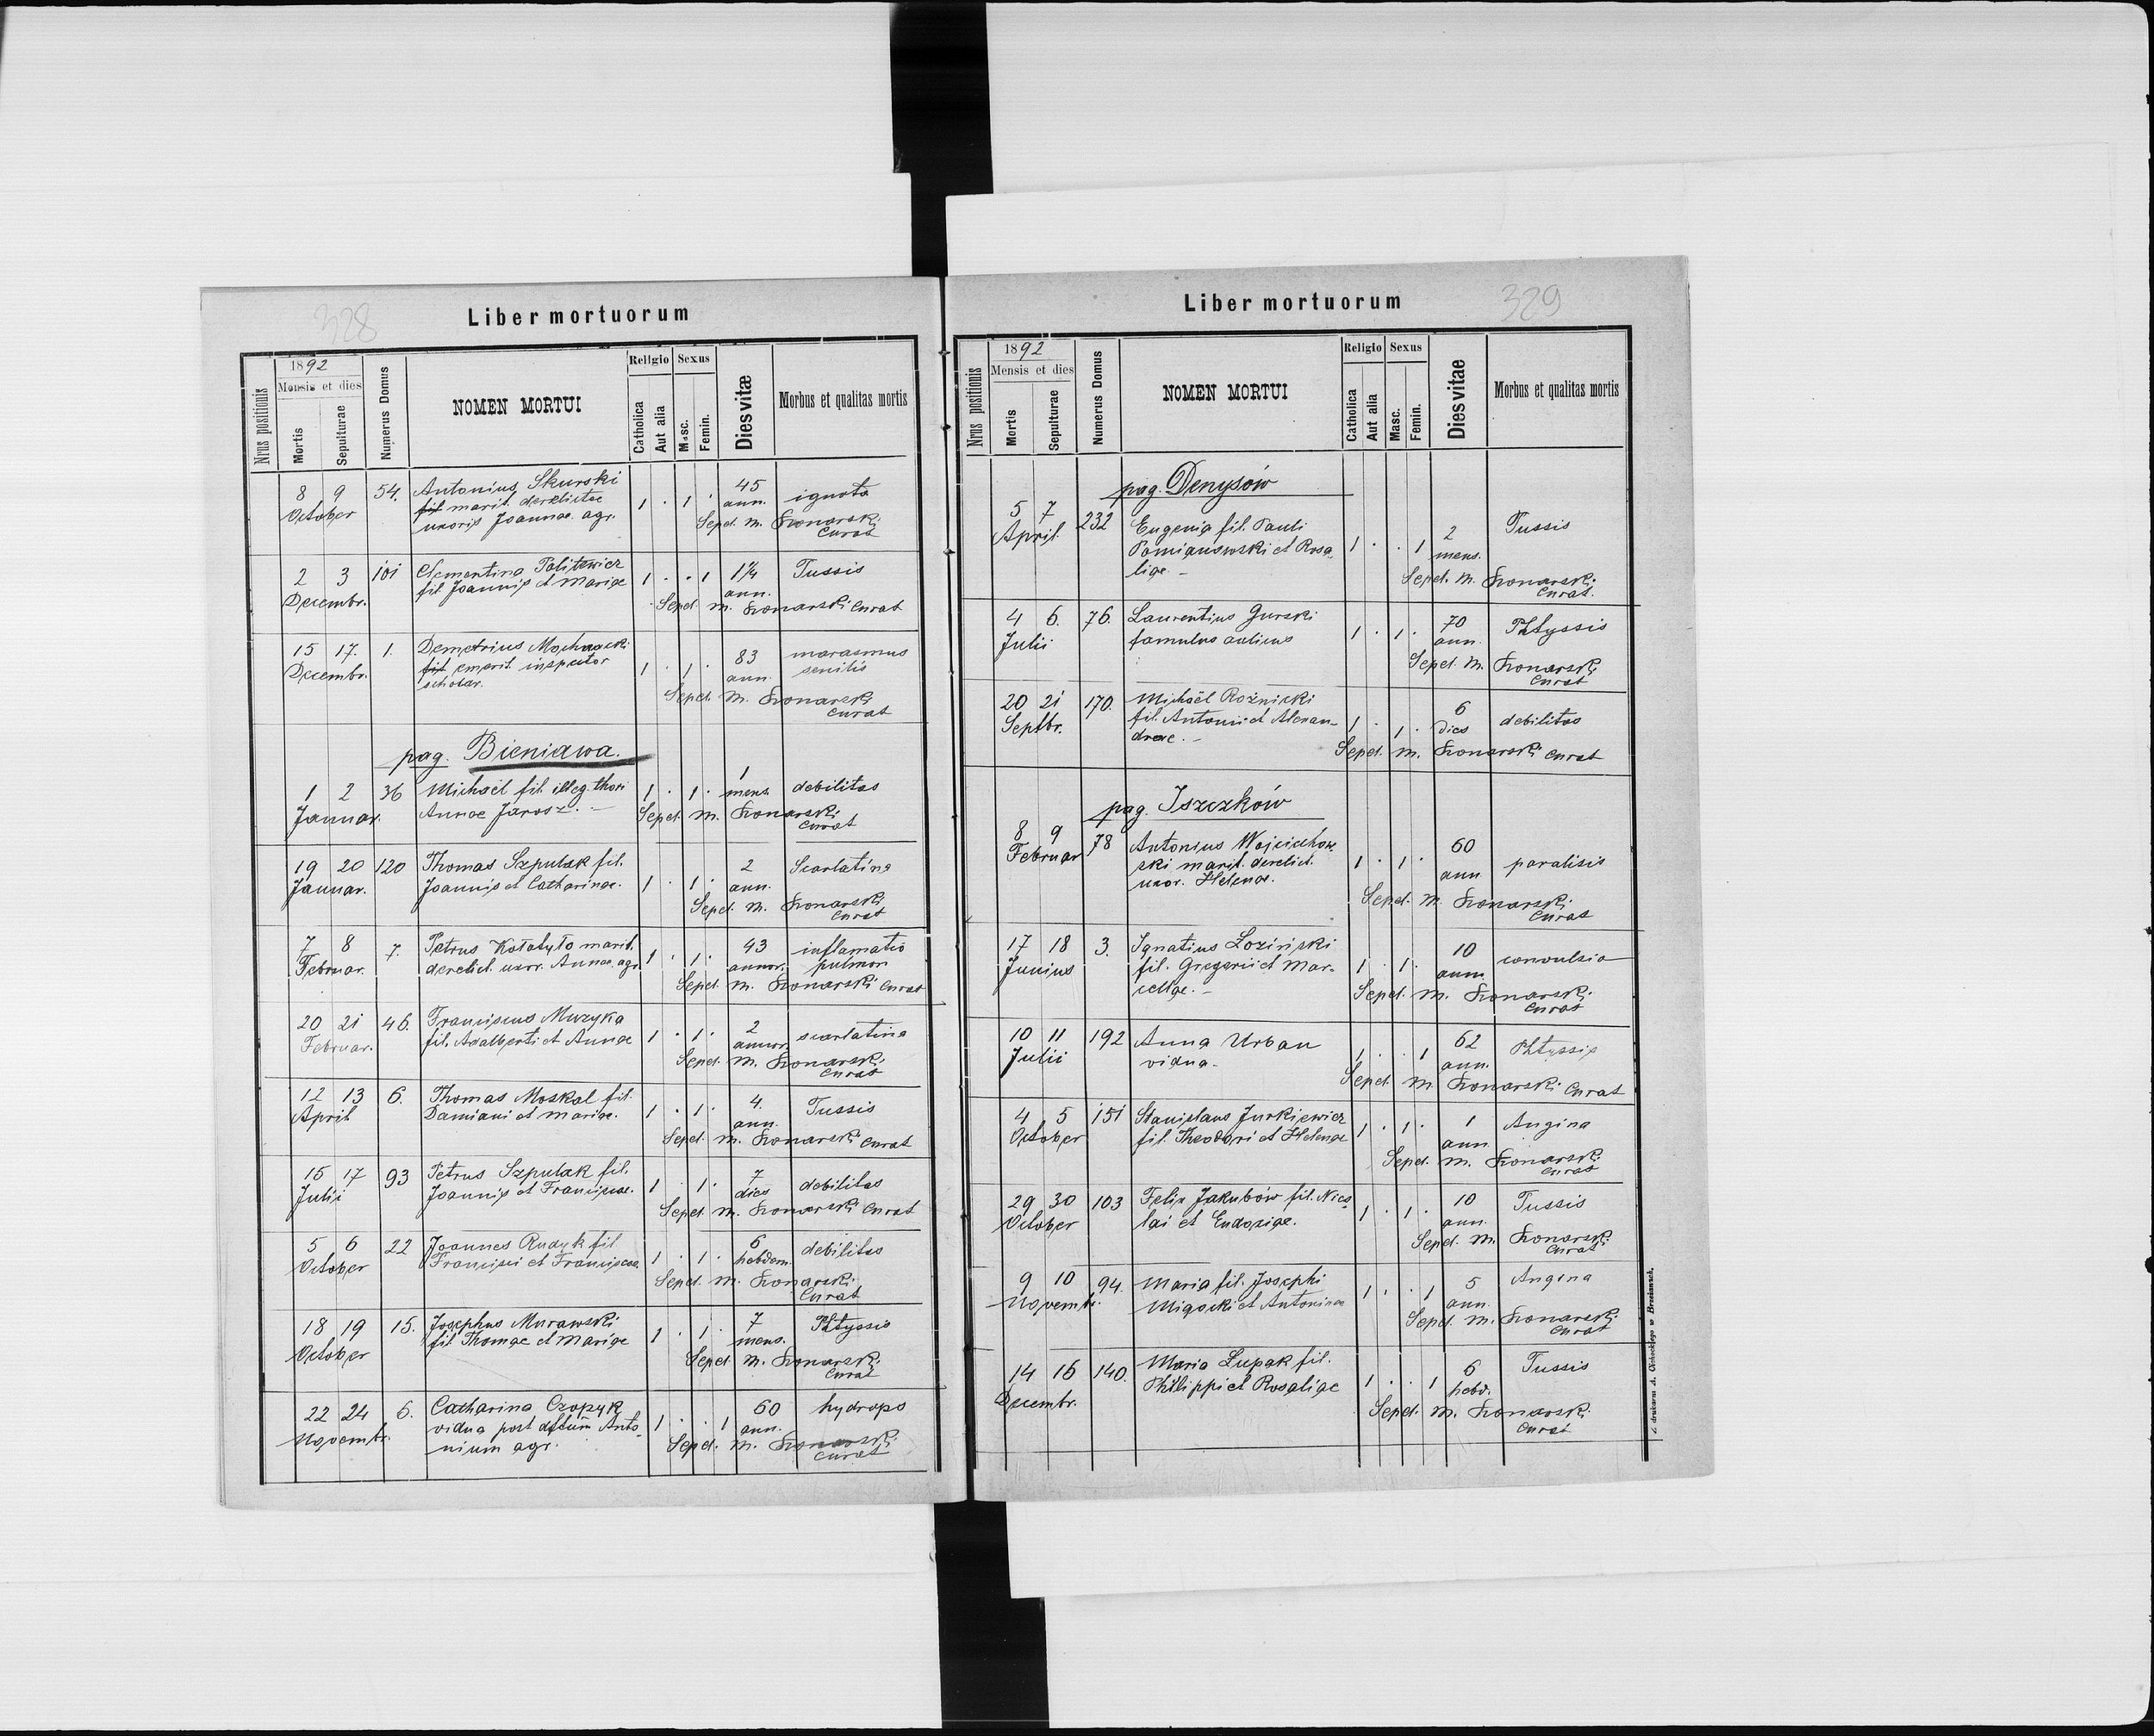 328
Liber mortuorum
1892
Mensis et dies
Religio Sexus
Nrus positionis Mortis Sepulturae Numerus Domus NOMEN MORTUI Catholica Aut alia Masc. Femin. Dies vitæ Morbus et qualitas mortis
8 9 54. Antonius Skurski 45
October fil marit. derelictae 1 . 1 . ann. ignota
uxoris Joannae agr. Sepel. M. Konarski
Curat
2 3 101 Clementina Politewicz 1 . . 1 1¼ Tussis
Decembr. fil Joannis et Mariae ann.
Sepel. M. Konarski Curat
15 17. 1. Demetrius 83 marasmus
Decembr. fil emerit. inspector 1 . 1 . ann. senilis
scholar. Sepel. M. Konarski
Curat
pag. Bieniawa.
1 2 36 Michael fil. illeg. thori 1 . 1 . 1 mens. debilitas
Januar. Annae Jarosz. — Sepel. M. Konarski
Curat
19 20 120 Thomas Szpulak fil. 2 Scarlatina
Januar. Joannis et Catharinae. 1 . 1 . ann.
Sepel. M. Konarski
Curat
7 8 7. Petrus Kołatyło marit. 1 . 1 . 43 inflamatio
Februar. derelict. uxor. Annae agr. annor. pulmon
Sepel. M. Konarski Curat
20 21 46. Franciscus Muzyka 1 . 1 . 2 scarlatina
Februar. fil. Adalberti et Annae annor.
Sepel. M. Konarski
Curat
12 13 6. Thomas Moskal fil. 1 . 1 . 4. Tussis
April Damiani et Mariae. ann.
Sepel. M. Konarski Curat
16 17 93 Petrus Szpulak fil. 1 . 1 . 7 debilitas
Julii Joannis et Franciscae. dies
Sepel. M. Konarski Curat
5 6 22 Joannes Rudyk fil 1 . 1 . 6 debilitas
October Francisci et Franciscae hebdom.
Sepel. M. Konarski
Curat
18 19 15. Josephus Murawski 1 . 1 . 7 Phtyssis
October fil. Thomae et Mariae mens.
Sepel. M. Konarski
Curat
22 24 6. Catharina Czopyk 60 hydrops
Novembr. vidua post dfctum Anto- 1 . . 1 ann.
nium agr. Sepel. M. Konarski
Curat
329
Liber mortuorum
1892
Mensis et dies
Religio Sexus
Nrus positionis Mortis Sepulturae Numerus Domus NOMEN MORTUI Catholica Aut alia Masc. Femin. Dies vitae Morbus et qualitas mortis
pag. Denysów
5 7 232 Eugenia fil. Pauli 2 Tussis
April. Pomianowski et Rosa- 1 . . 1 mens.
liae — Sepel. M. Konarski
Curat.
4 6. 76. Laurentius Gurski 1 . 1 . 70 Phtyssis
Julii famulus aulicus ann.
Sepel. M. Konarski
Curat
20 21 170. Michaël Rożnicki 6
Septbr. fil. Antonii et Alexan- 1 . 1 . dies debilitas
drae. — Sepel. M. Konarski Curat
pag. Iszczków
8 9 78 Antonius Wojciechow- 60
Februar ski marit. derelict. 1 . 1 . ann paralisis
uxor. Helenae. Sepel. M. Konarski
Curat
17 18 3. Ignatius Loziński 10
Junius fil. Gregorii et Mar- 1 . 1 . ann. convulsia
cellae. — Sepel. M. Konarski
Curat
10 11 192 Anna Urban 1 . . 1 62 Phtyssis
Julii vidua. ann.
Sepel. M. Konarski Curat
4 5 151 Stanislaus Jurkiewicz 1 . 1 . 1 Angina
October fil. Theodori et Helenae ann.
Sepel. M. Konarski
Curat
29 30 103 Felix Jakubów fil. Nico- 1 . 1 . 10 Tussis
October lai et Eudoxiae. ann.
Sepel. M. Konarski
Curat
9 10 94. Maria fil. Josephi 1 . . 1 5 Angina
Novembr. Migocki et Antoninae ann.
Sepel. M. Konarski
Curat
14 16 140. Maria Lupak fil. 1 . . 1 6 Tussis
Decembr. Philippi et Rosaliae hebd.
Sepel. M. Konarski
Curat